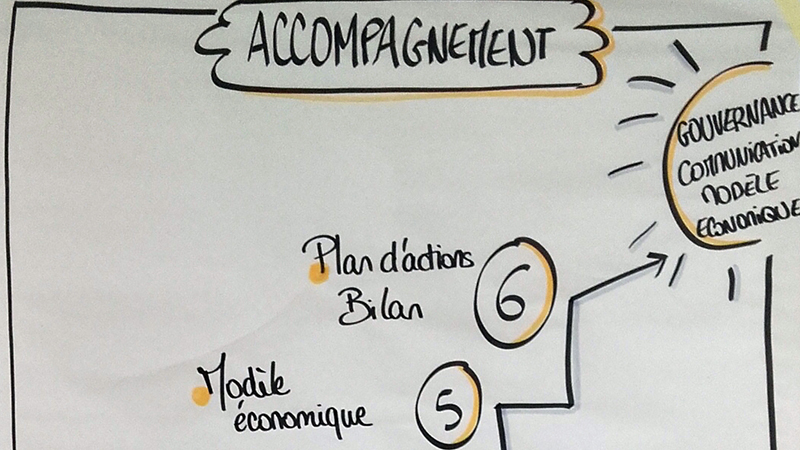 ACCOMPAGNEMENT
GOUVERNANCE
COMMUNICATION
MODÈLE
ECONOMIQUE
Plan d'actions
Bilan
6
Modèle
économique
5